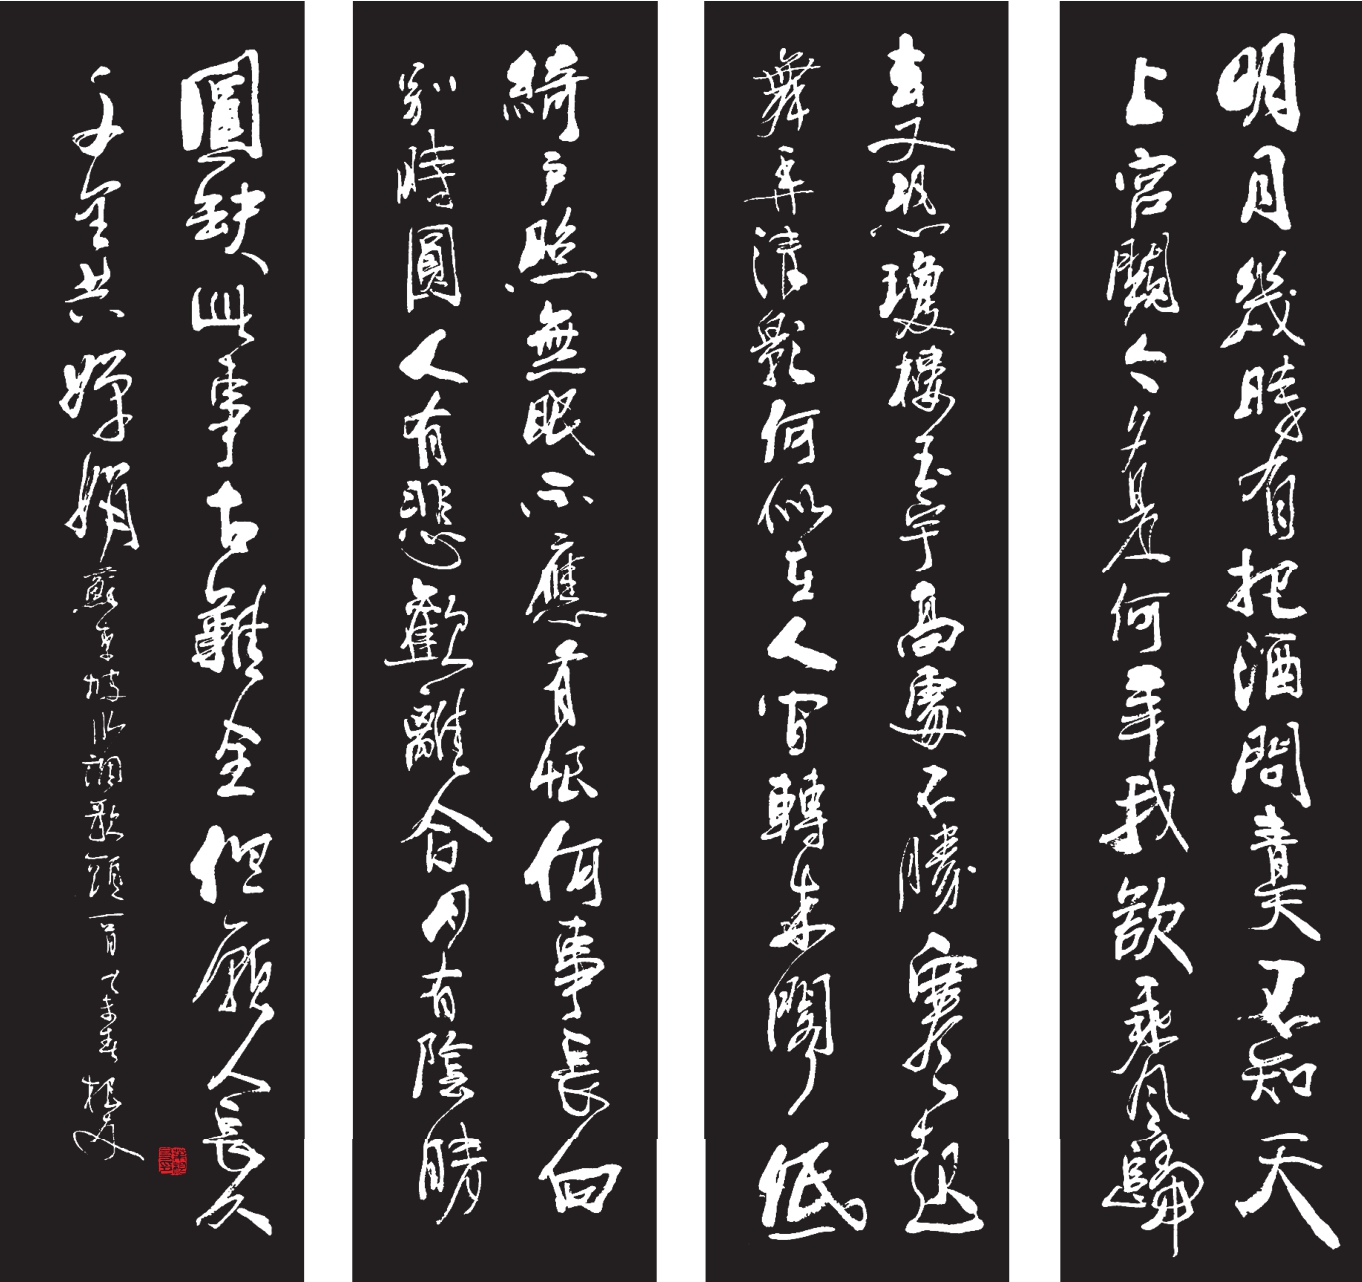 明月幾時有把酒問青天不知天
上宮闕今夕是何年我欲乘風歸
去又恐瓊樓玉宇高處不勝寒起
舞弄清影何似在人間轉朱閣低
綺戶照無眠不應有恨何事長向
別時圓人有悲歡離合月有陰晴
圓缺此事古難全但願人長久
千里共嬋娟 蘇東坡水調歌頭一首 乙未春